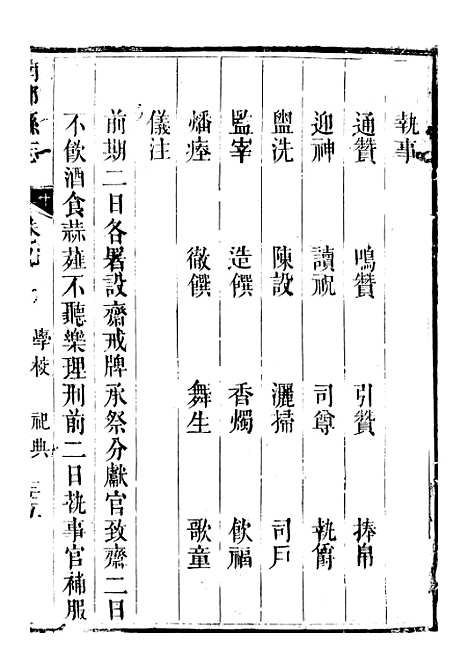 執事
通贊 鳴贊 引贊 捧帛
迎神 讀祝 司尊 執爵
盥洗 陳設 灑掃 司戶
監宰 造饌 香燭 飲福
燔瘞 徹饌 舞生 歌童
儀注
前期二日各署設齋戒牌承祭分獻官致齋二日
不飲酒食蒜薤不聽樂理刑前二日執事官補服
縣志 學校 祀典